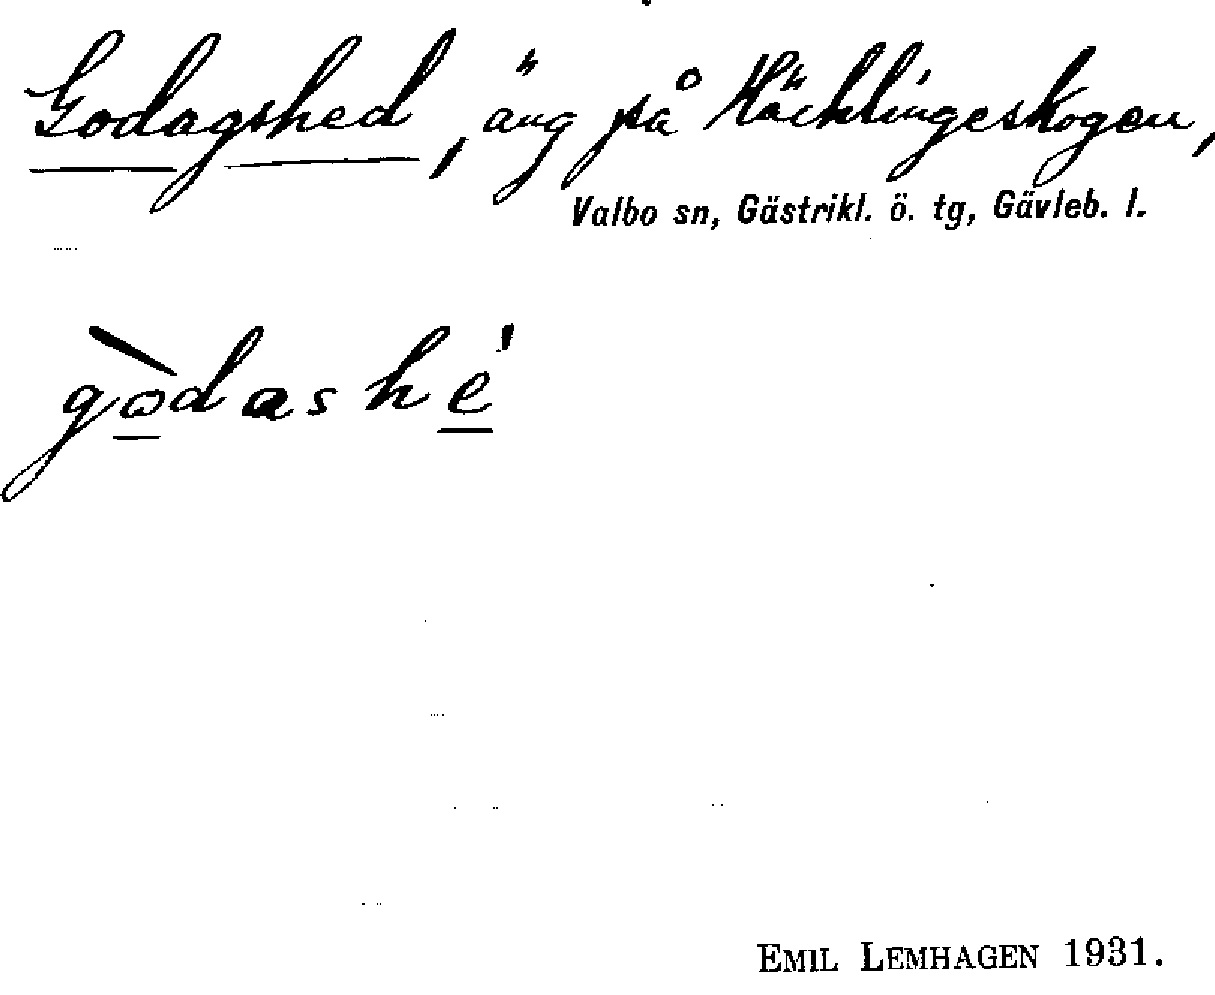 Godagshed, äng på Häcklingeskogen,
Valbo sn, Gästrikl. ö. tg, Gävleb. l.
gòdashé
EMIL LEMHAGEN 1931.